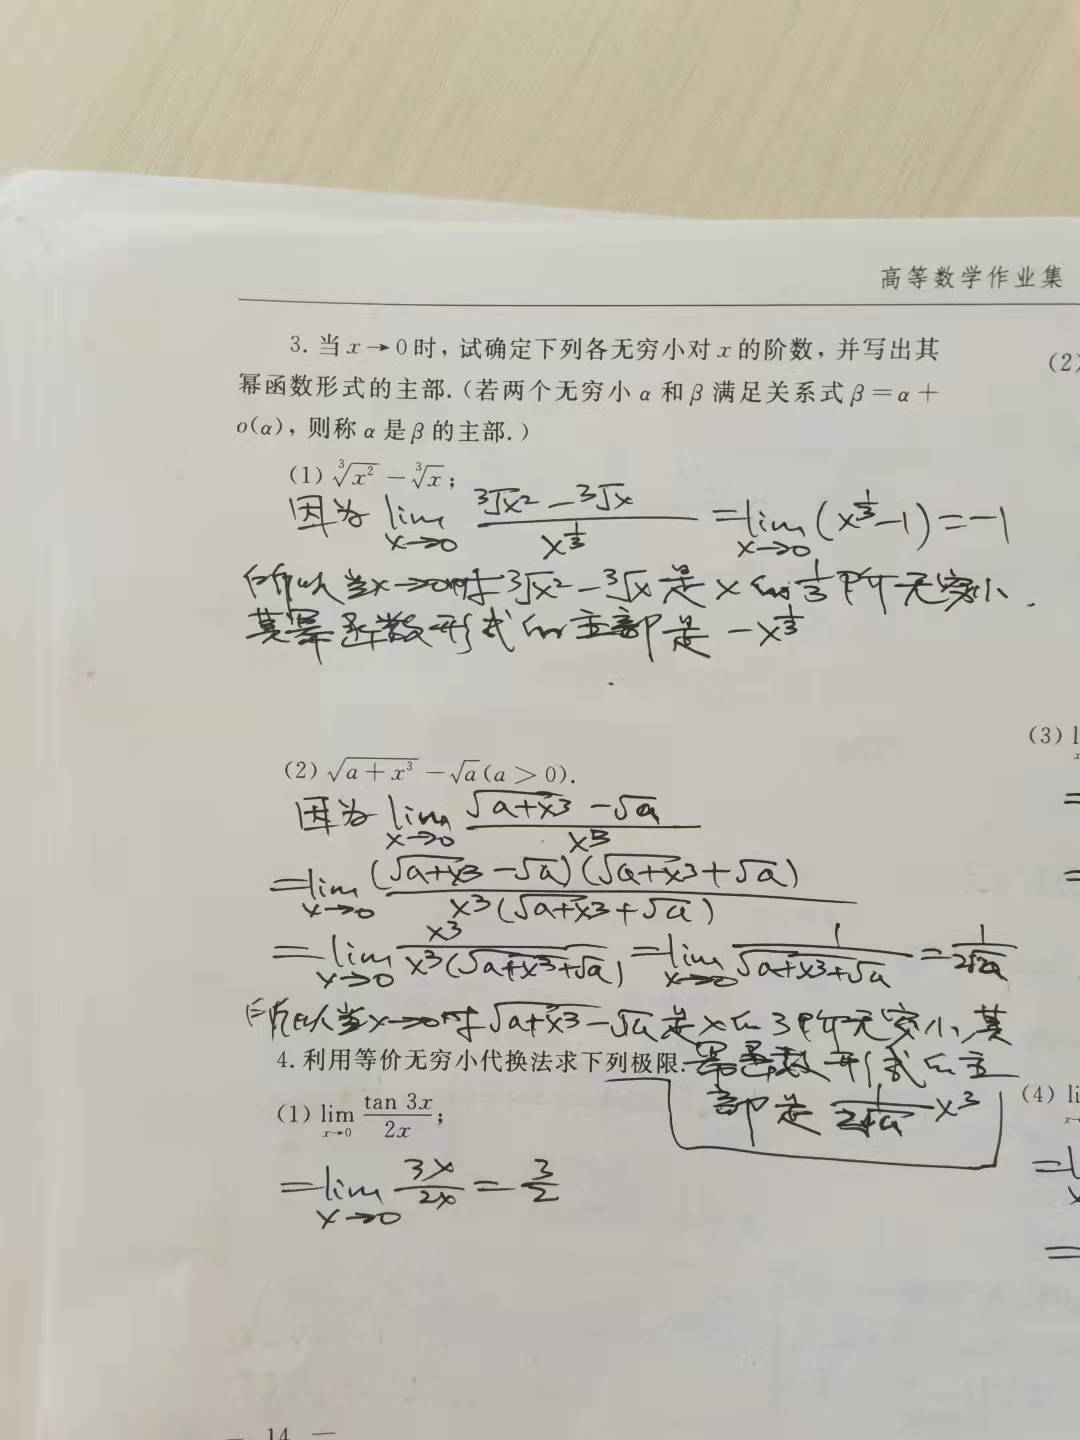 高等数学作业集
3. 当 x→0 时, 试确定下列各无穷小对 x 的阶数, 并写出其
幂函数形式的主部. (若两个无穷小 α 和 β 满足关系式 β=α+
o(α), 则称 α 是 β 的主部.)
(2)
(1) ∛x² − ∛x;
因为 lim x→0 (∛x² − ∛x)/x^(1/3) = lim x→0 (x^(1/3) − 1) = −1
所以当x→0时 ∛x² − ∛x 是 x 的 1/3 阶无穷小.
其幂函数形式的主部是 −x^(1/3)
(3) l
(2) √(a+x³) − √a (a>0).
因为 lim x→0 (√(a+x³) − √a)/x³
= lim x→0 (√(a+x³) − √a)(√(a+x³) + √a)/(x³(√(a+x³) + √a))
= lim x→0 x³/(x³(√(a+x³)+√a)) = lim x→0 1/(√(a+x³)+√a) = 1/(2√a)
所以当x→0时 √(a+x³) − √a 是 x 的 3 阶无穷小, 其
幂函数形式的主
部是 1/(2√a) x³
4. 利用等价无穷小代换法求下列极限.
(1) lim x→0 tan 3x/2x;
(4) li
= lim x→0 3x/2x = 3/2
— 14 —